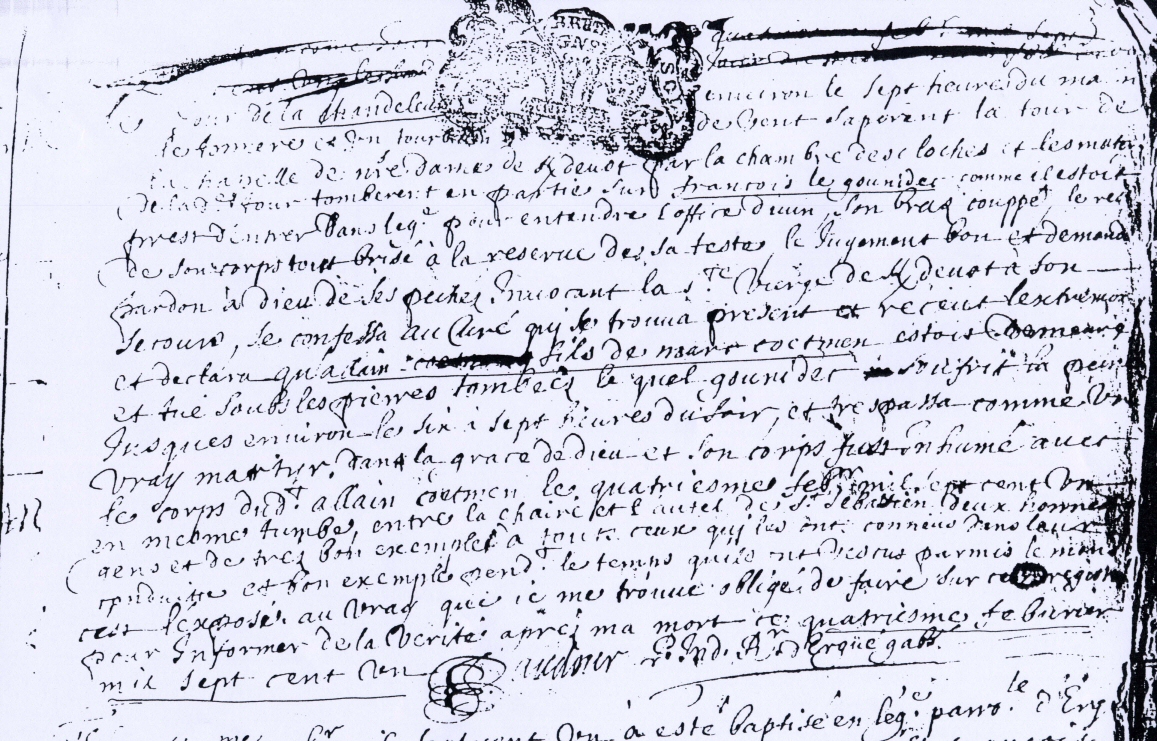 BRET
GNE
Le jour de la Chandeleur environ le sept heures du matin
le tonnere et un tourbillon de vent saperent la tour de
la chapelle de nre dame de Kdevot par la chambre des cloches et les mater
de lad. tour tomberent en partie sur francois le gounidec comme il estoit
prest d'entrer dans leg. pour entendre l'office divin, son bras couppé, le res
de son corps tout brisé à la reserve de sa teste, le jugement bon et demand
pardon à dieu de ses pechez invocant la ste Vierge de Kdevot à son
secours, se confessa au Curé qui se trouva present et receut l'extremon
et declara qu'allain fils de marc coetmen estois demeuré
et tué soubs les pierres tombées le quel gounidec soufrit la pein
jusques environ le six à sept heures du soir, et trespassa comme un
vray martyr dans la grace de dieu et son corps fust inhumé avec
le corps dudt allain coetmen le quatriesme febvr mil sept cent un
en mesme tumbe, entre la chaire et l'autel de st Sebastien deux honnes
gens et de tres bon exemple à touts ceux qui les ont conneus dans leur
conduitte et bon exemple pendt le temps quils ont vescus parmis le mond
cest l'exposé au vray que je me trouve obligé de faire sur ce registre
pour informer de la verité apres ma mort ce quatriesme febvrier
mil sept cent un r. ind. Rr d'Ergué gabt.
un a esté baptisé en leg. parro.le d'Erg